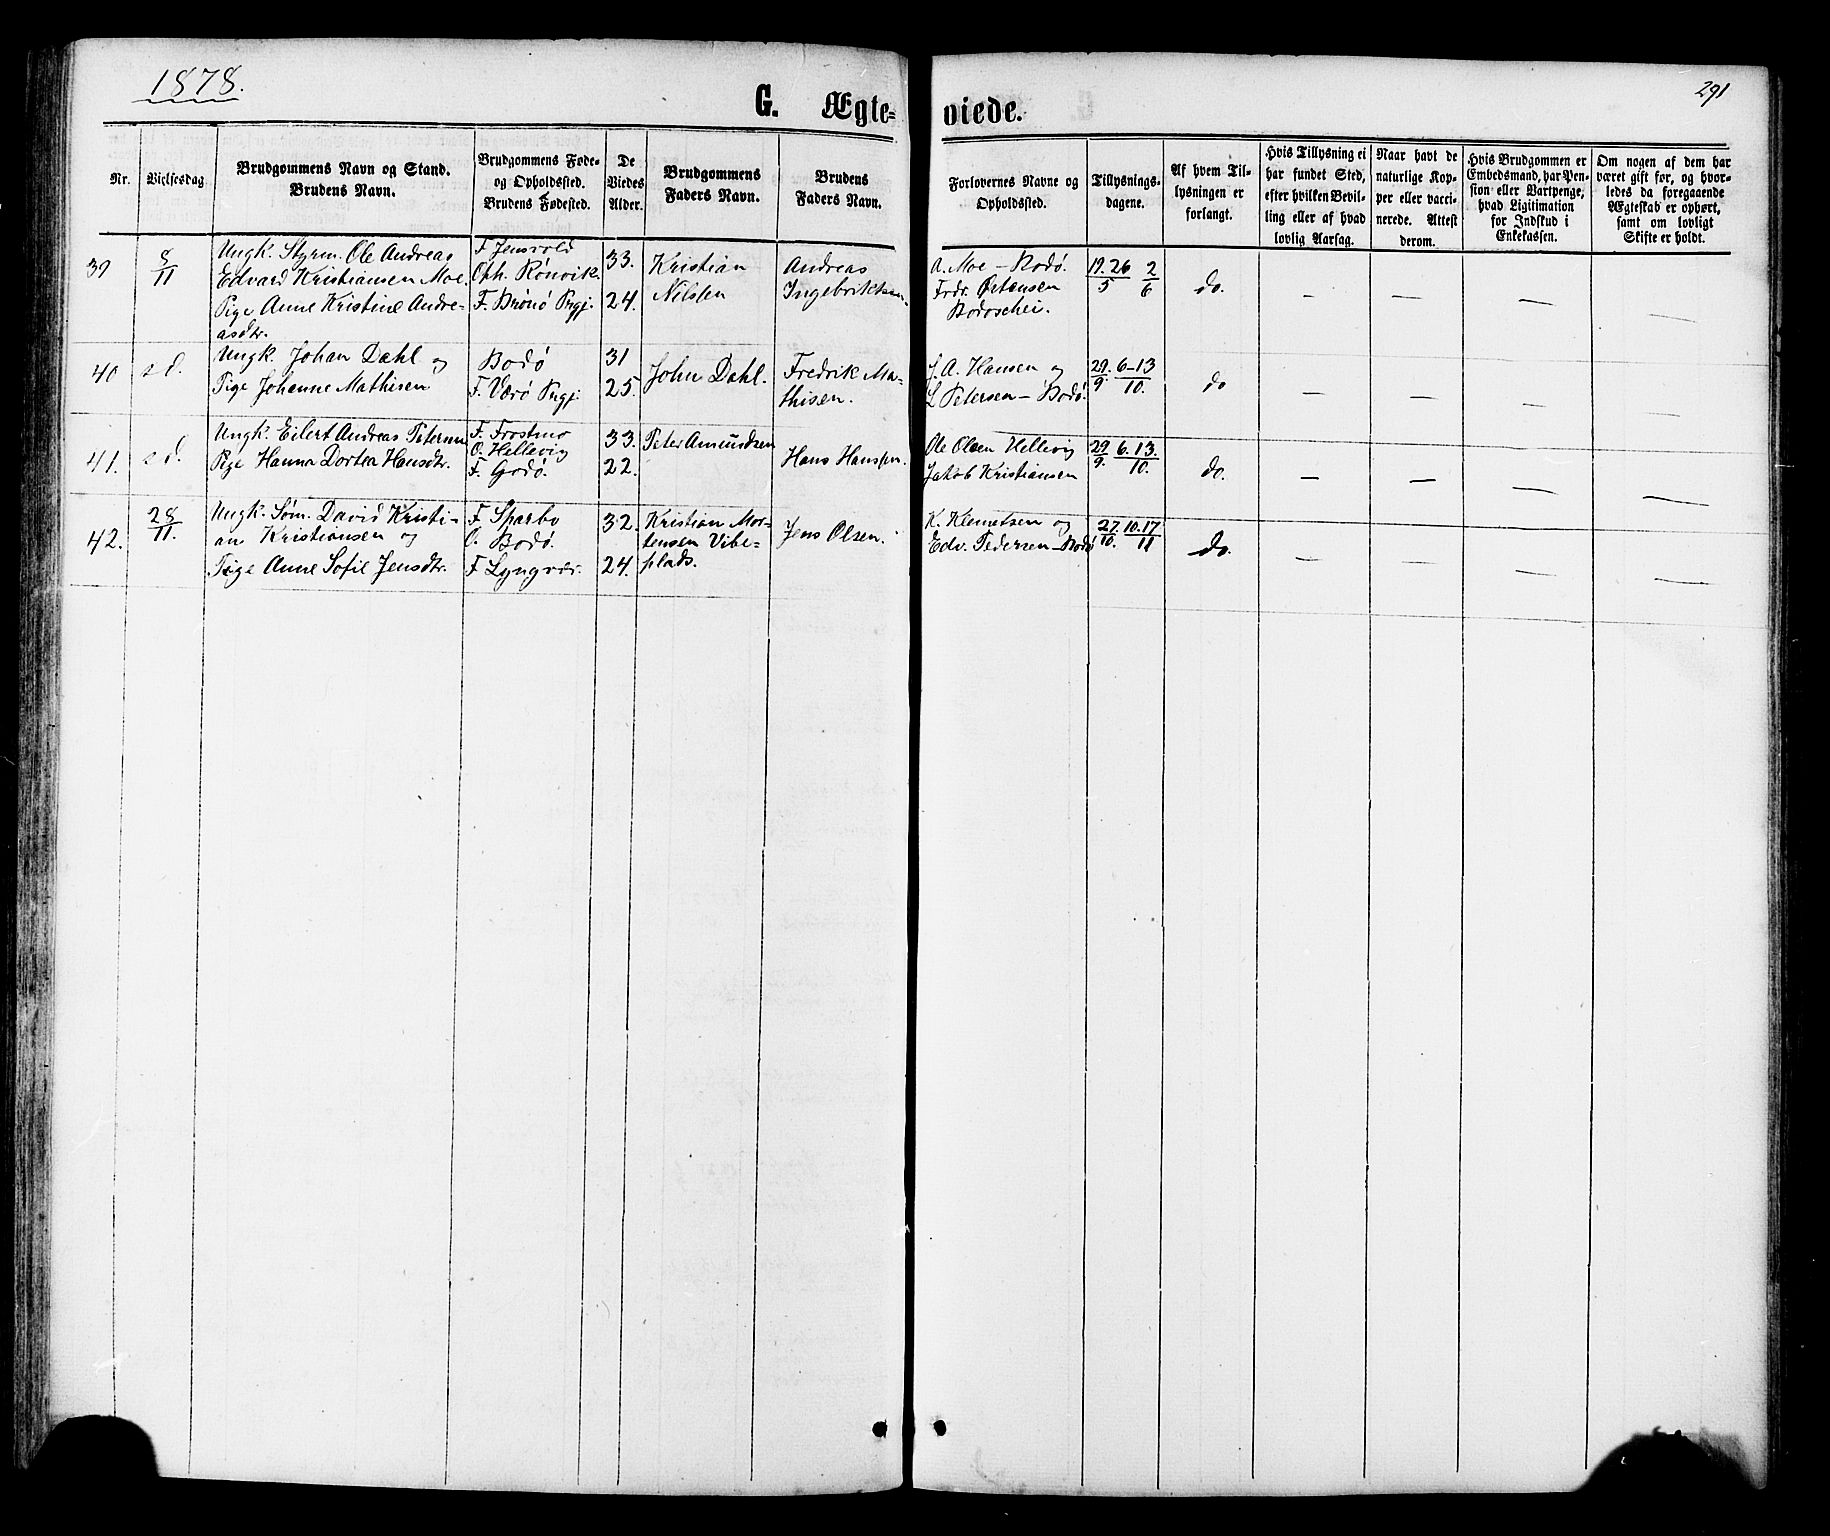 1878.
291
G. Ægte-
viede.
Nr.
Vielsesdag
Brudgommens Navn og Stand.
Brudens Navn.
Brudgommens Føde-
og Opholdssted.
Brudens Fødested.
De
Viedes
Alder.
Brudgommens
Faders Navn.
Brudens
Faders Navn.
Forlovernes Navne og
Opholdssted.
Tillysnings-
dagene.
Af hvem Til-
lysningen er
forlangt.
Hvis Tillysning ei
har fundet Sted,
efter hvilken Bevil-
ling eller af hvad
lovlig Aarsag.
Naar havt de
naturlige Kop-
per eller vacci-
nerede. Attest
derom.
Hvis Brudgommen er
Embedsmand, har Pen-
sion eller Vartpenge,
hvad Ligitimation
for Indskud i
Enkekassen.
Om nogen af dem har
været gift før, og hvor-
ledes da foregaaende
Ægteskab er ophørt,
samt om lovligt
Skifte er holdt.
39
8/11
Ungk. Styrm. Ole Andreas
Edvard Kristiansen Moe.
Pige Anne Kristine Andre-
asdtr.
F. Jensvold
Oph. Rønvik.
F. Brønø Prgj.
33.
24.
Kristian
Nilsen
Andreas
Ingebriktsen.
A. Moe – Bodø.
Frdr. Ortensen
Bodøschei.
19. 26/5 2/6
do.
— — — —
40
s d.
Ungk. Johan Dahl og
Pige Johanne Mathisen
Bodø
F. Værø Prgj.
31
25.
John Dahl.
Fredrik Ma-
thisen.
J. A. Hansen og
L Petersen – Bodø.
29./9. 6–13/10.
do
— — — —
41.
s d.
Ungk. Eilert Andreas Petersen
Pige Hanna Dortea Hansdtr.
F. Frostmo
O. Hellevig
F. Godø.
33.
22.
Peter Amundsen
Hans Hansen.
Ole Olsen Hellevig
Jakob Kristiansen
29/9. 6. 13./10.
do.
— — — —
42.
28/11.
Ungk. Søm. David Kristi-
an Kristiansen og
Pige Anne Sofie Jensdtr.
F. Sparbo
O. Bodø.
F Lyngvær.
32.
24.
Kristian Mor-
tensen Vibe-
plads.
Jens Olsen.
K. Klemetsen og
Edv. Pedersen – Bodø
27./10. 10. 17/11
do.
— — — —